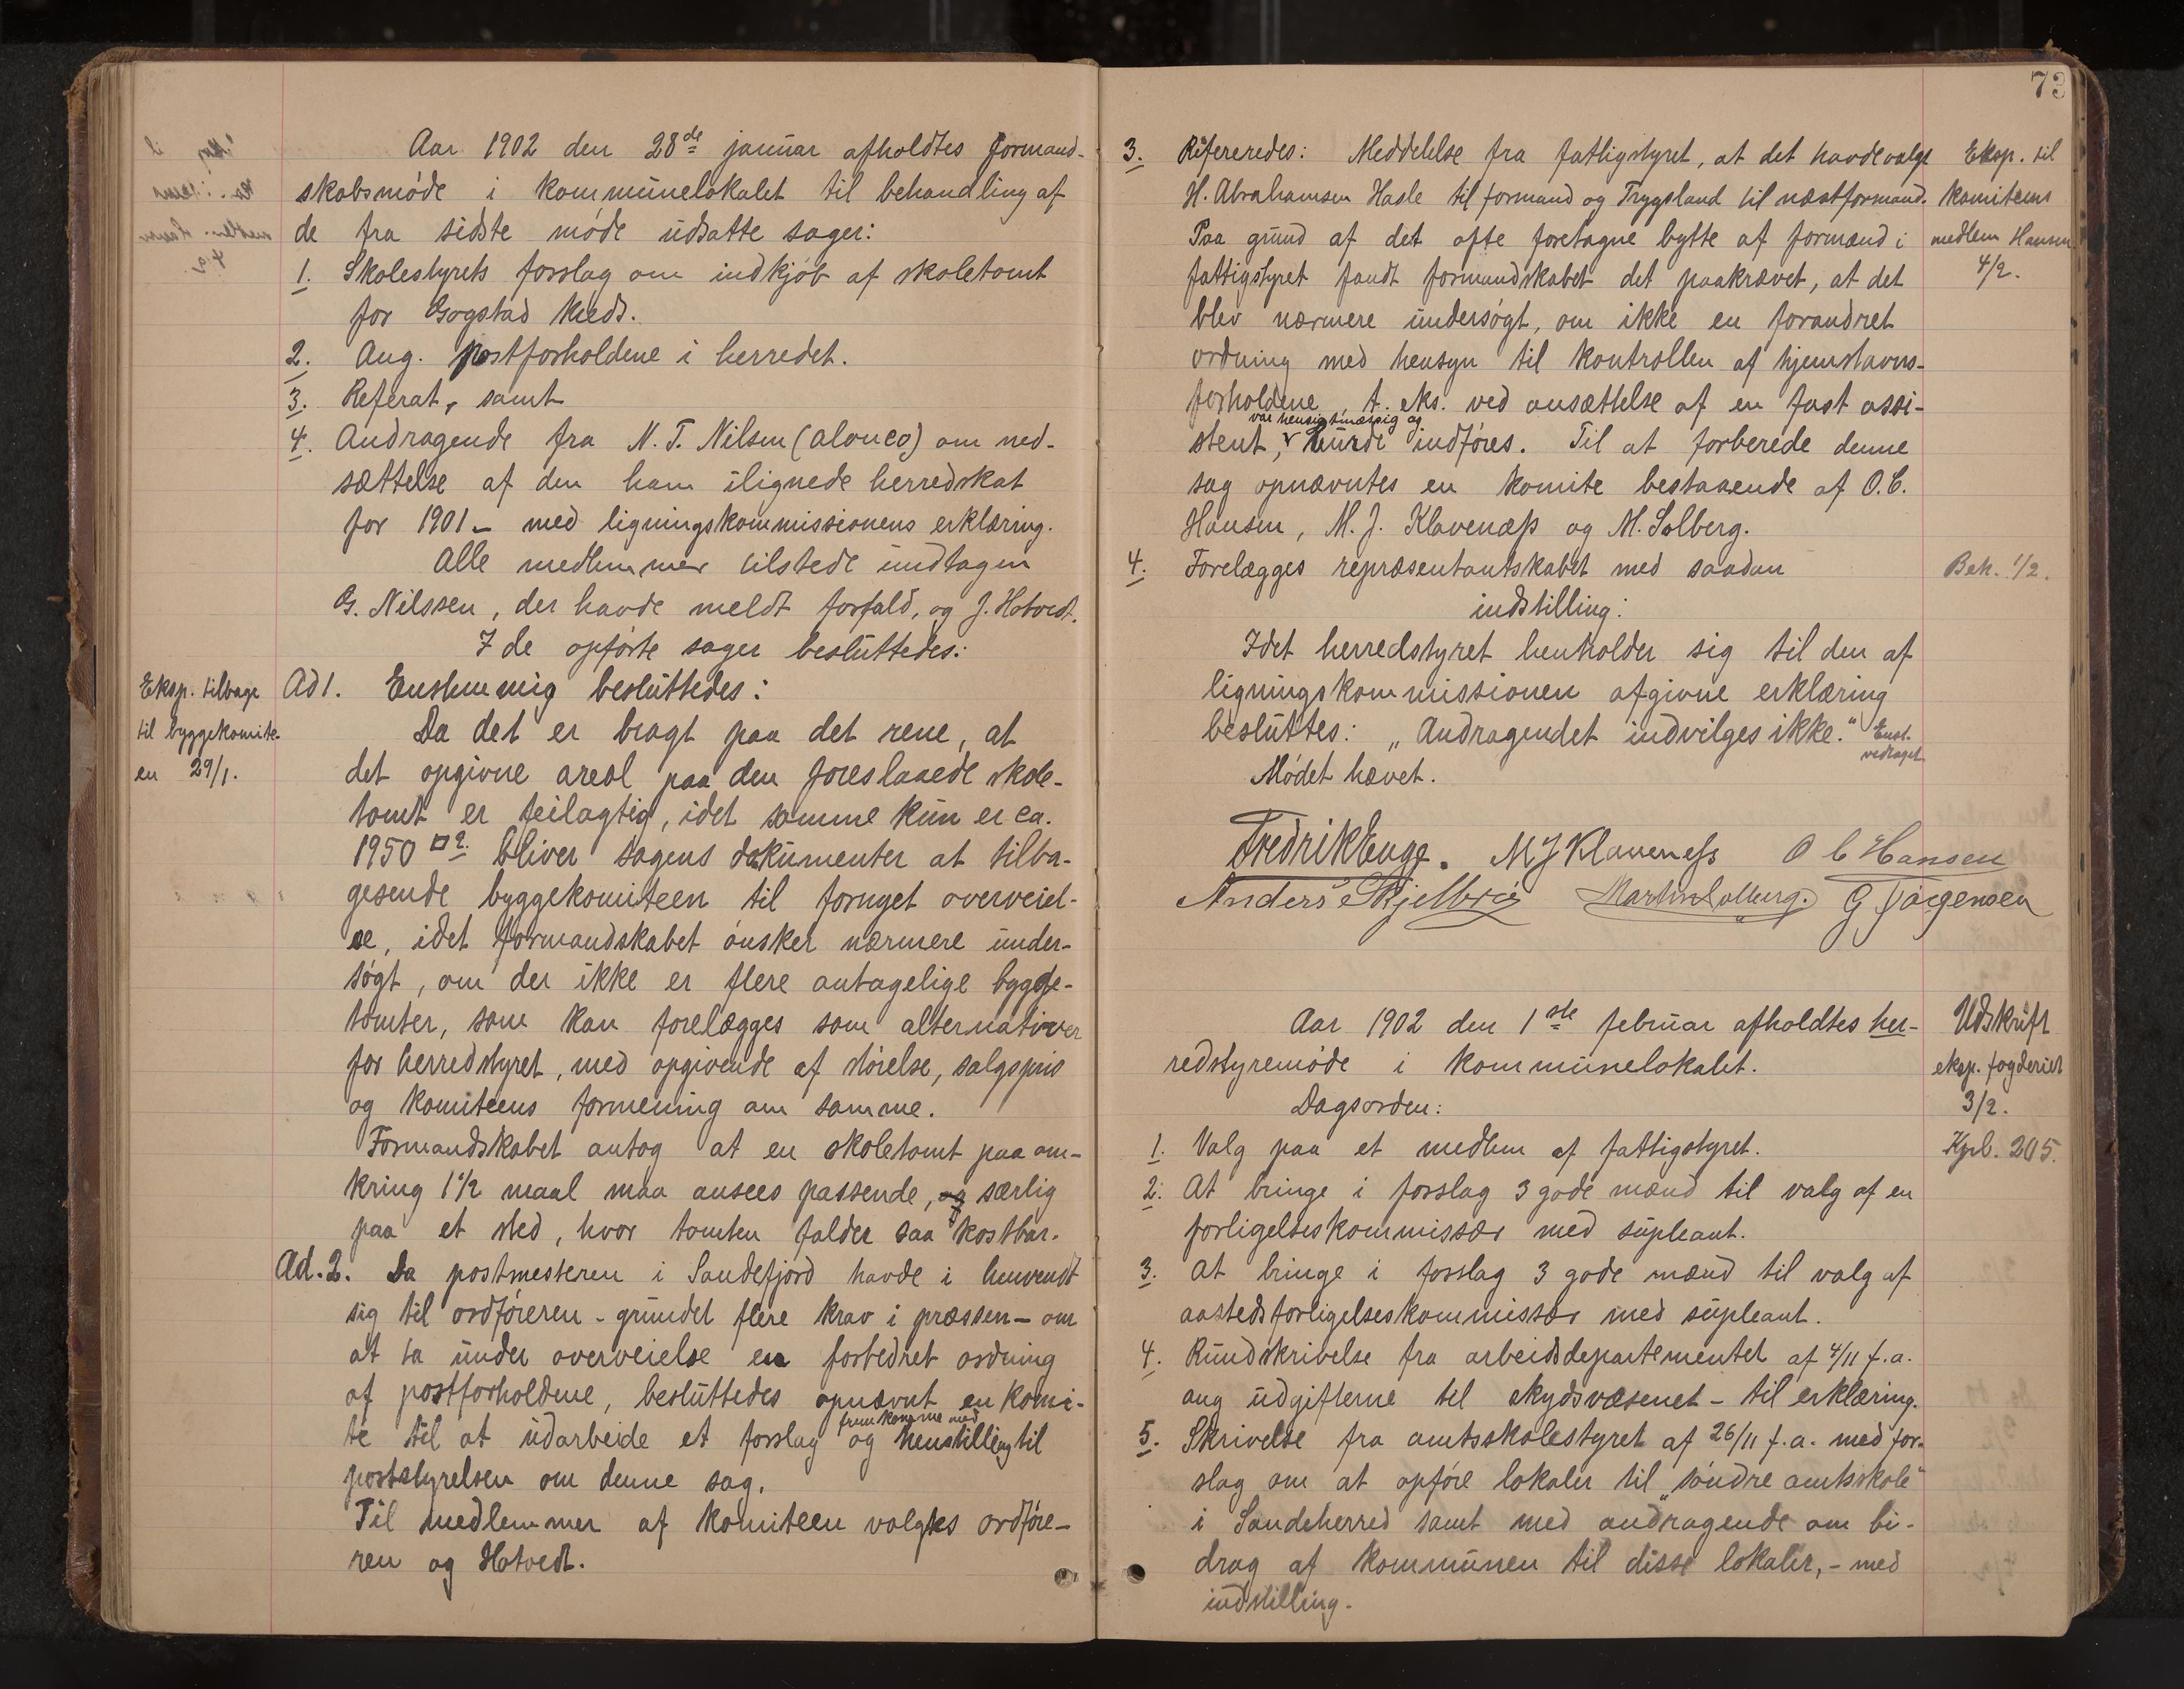 Aar 1902 den 28de januar afholdtes formand-
skabsmøde i kommunelokalet til behandling af
de fra sidste møde udsatte sager:
1. Skolestyrets forslag om indkjøb af skoletomt
for Gogstad kreds.
2. Ang. postforholdene i herredet.
3. Referat, samt
4. Andragende fra N. T. Nilsen (Alonco) om ned-
sættelse af den ham ilignede herredskat
for 1901 - med ligningskommissionens erklæring.
Alle medlemmer tilstede undtagen
G. Nilssen, der havde meldt forfald, og J. Hotvedt.
I de opførte sager besluttedes:
Eksp. tilbage
til byggekomite-
en 29/1.
Ad 1. Enstemmig besluttedes:
Da det er bragt paa det rene, at
det opgivne areal paa den foreslaaede skole-
tomt er feilagtig, idet samme kun er ca.
1950 □ 2. bliver sagens dokumenter at tilba-
gesende byggekomiteen til fornyet overveiel-
se, idet formandskabet ønsker nærmere under-
søgt, om der ikke er flere antagelige bygge-
tomter, som kan forelægges som alternativer
for herredstyret, med opgivende af størelse, salgspris
og komiteens formening om samme.
Formandskabet antog at en skoletomt paa om-
kring 1 1/2 maal maa ansees passende, og særlig
paa et sted, hvor tomten falder saa kostbar.
Ad. 2. Da postmesteren i Sandefjord havde i henvendt
sig til ordføreren - grundet flere krav i pressen - om
at ta under overveielse en forbedret ordning
af postforholdene, besluttedes opnævnt en komi-
te til at udarbeide et forslag og fremkomme med henstilling til
poststyrelsen om denne sag.
Til medlemmer af komiteen valgtes ordføre-
ren og Hotvedt.
73
3. Refereredes: Meddelelse fra fattigstyret, at det havde valgt
H. Abrahamsen Hasle til formand og Trygsland til næstformand.
Paa grund af det ofte foretagne bytte af formænd i
fattigstyret fandt formandskabet det paakrævet, at det
blev nærmere undersøgt, om ikke en forandret
ordning med hensyn til kontrollen af hjemstavns-
forholdene, t. eks. ved ansættelse af en fast assi-
stent, var hensigtsmæssig og burde indføres. Til at forberede denne
sag opnævntes en komite bestaaende af O. C.
Hansen, M. J. Klavenæss og M. Solberg.
Eksp. til
komiteens
medlem Hansen
4/2.
4. Forelægges repræsentantskabet med saadan
indstilling:
Idet herredstyret henholder sig til den af
ligningskommissionen afgivne erklæring
besluttes: „Andragendet indvilges ikke." Enst.
vedtaget
Bek. 1/2.
Mødet hævet.
Fredrik Enge. M J Klaveness O C Hansen
Anders Skjelbrei Martin Solberg. G Jørgensen
Aar 1902 den 1ste februar afholdtes her-
redstyremøde i kommunelokalet.
Udskrift
eksp. fogderiet
3/2.
Kpb. 205.
Dagsorden:
1. Valg paa et medlem af fattigstyret.
2. At bringe i forslag 3 gode mænd til valg af en
forligelseskommissær med supleant.
3. At bringe i forslag 3 gode mænd til valg af
aastedsforligelseskommissær med supleant.
4. Rundskrivelse fra arbeidsdepartementet af 4/11 f.a.
ang udgifterne til skydsvæsenet - til erklæring.
5. Skrivelse fra amtsskolestyret af 26/11 f.a. med for-
slag om at opføre lokaler til „søndre amtsskole"
i Sandeherred samt med andragende om bi-
drag af kommunen til disse lokaler, - med
indstilling.